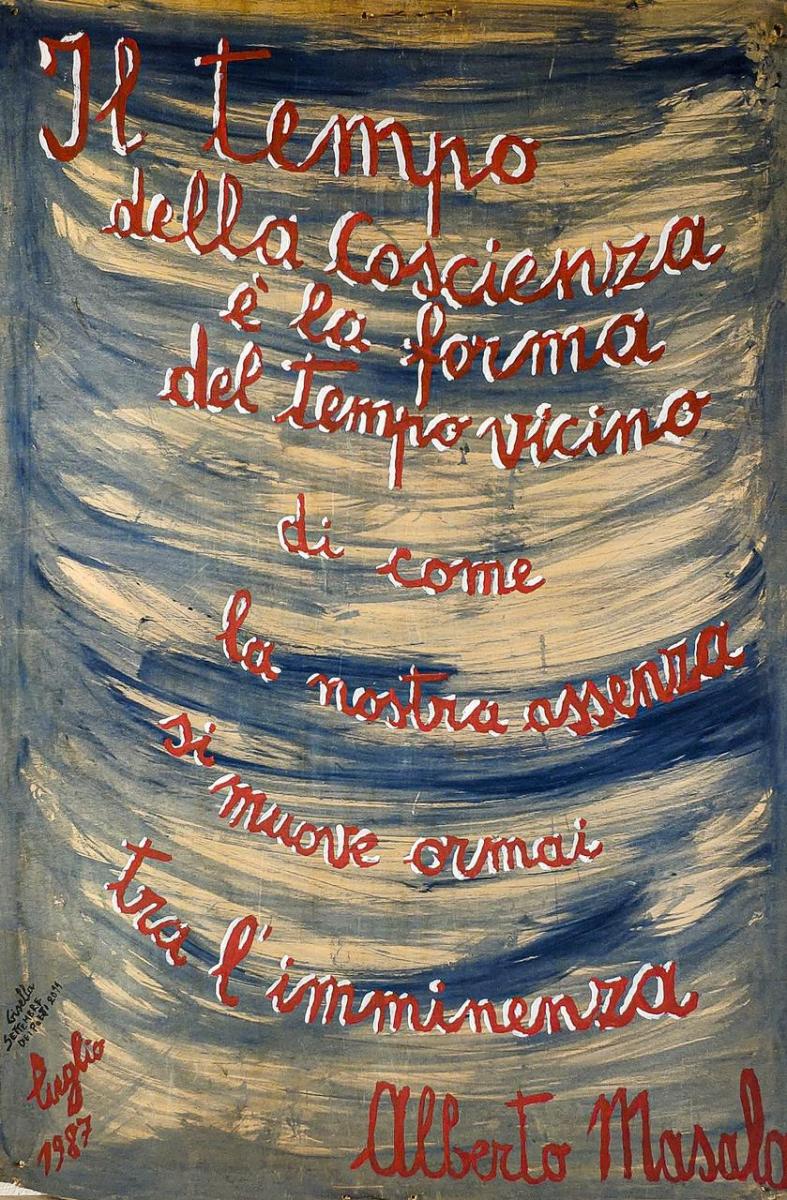 Il tempo
della Coscienza
è la forma
del tempo vicino
di come
la nostra assenza
si muove ormai
tra l'imminenza
Gisella
SETTEMBRE
DEI POETI 2011
luglio
1987
Alberto Masala